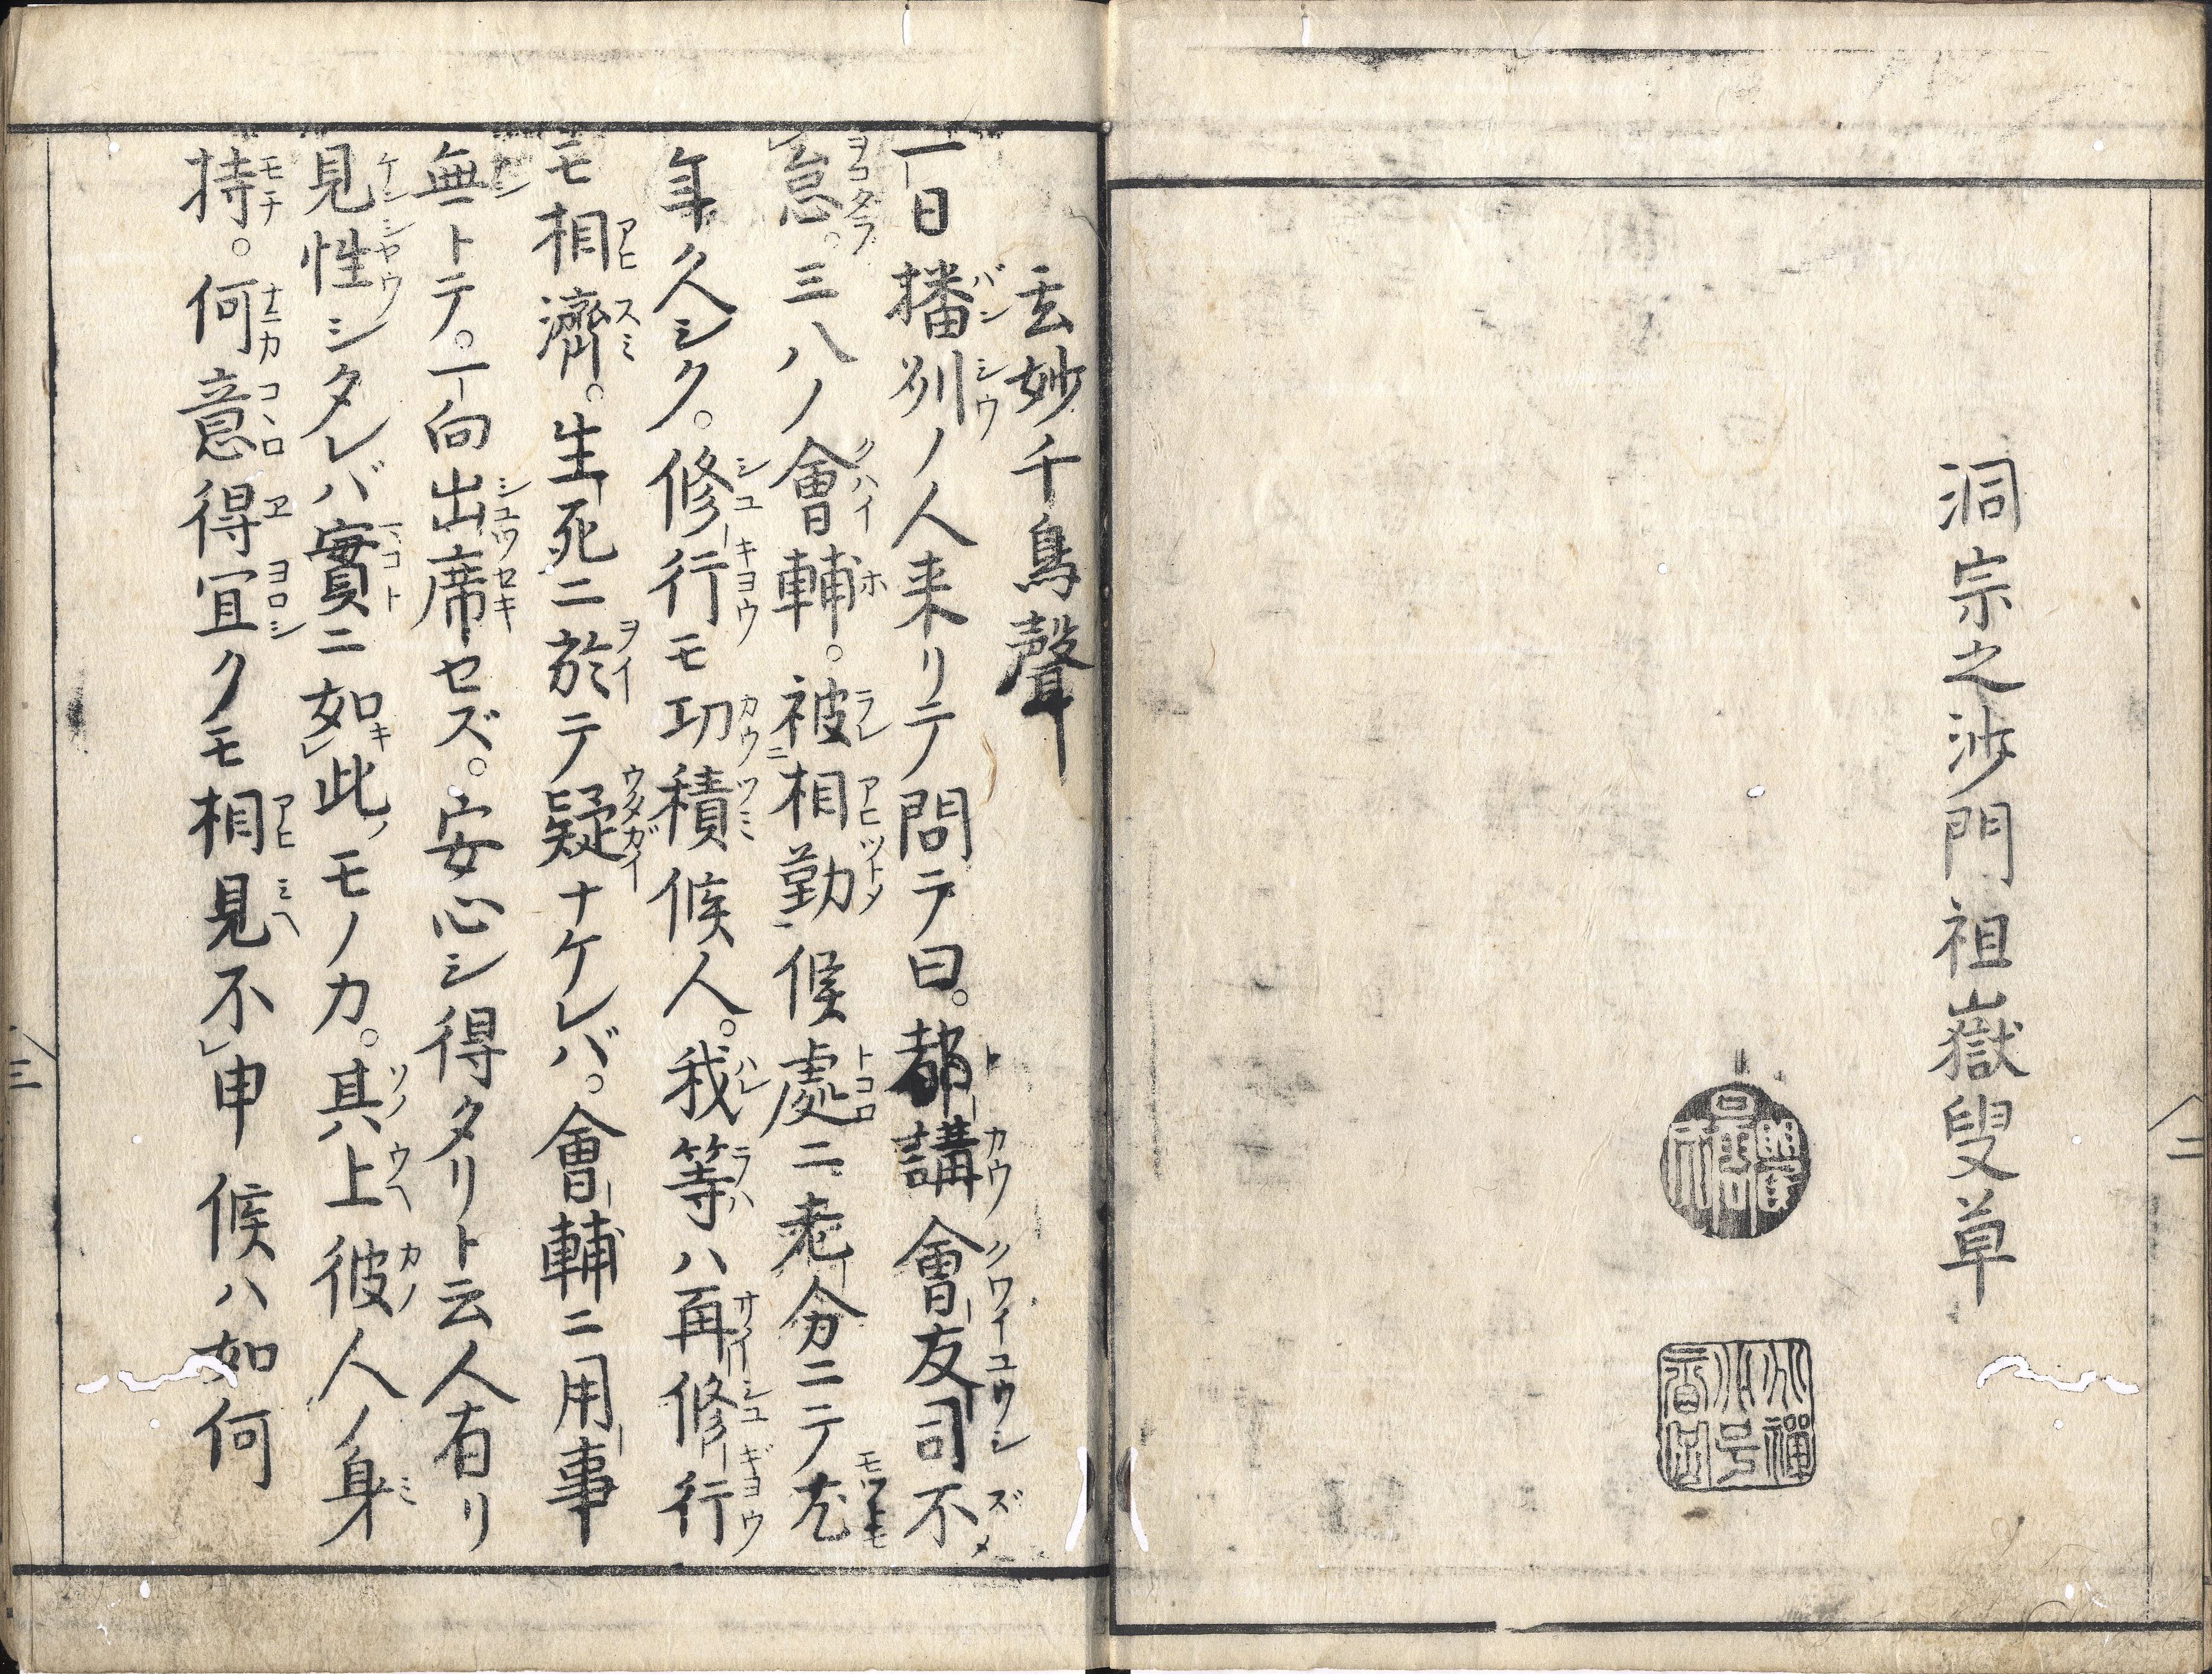 洞宗之沙門祖嶽叟草
二
玄妙千鳥聲
一日播州ノ人来リテ問テ曰。都講會友司不
怠。三八ノ會輔。被相勤候處ニ老分ニテ尤
年久シク。修行モ功積候人。我等ハ再修行
モ相濟。生死ニ於テ疑ナケレバ。會輔ニ用事
無トテ。一向出席セズ。安心シ得タリト云人有リ
見性シタレバ實ニ如此モノカ。其上彼人ノ身
持。何意得宜クモ相見不申候ハ如何
三